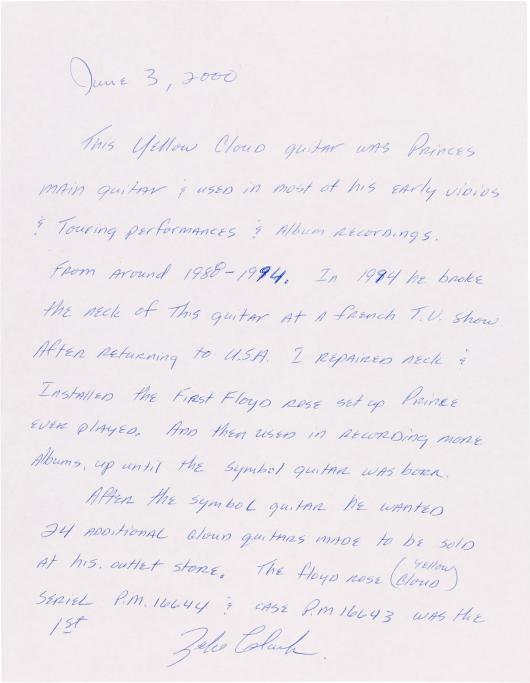 June 3, 2000
This Yellow Cloud guitar was Princes
main guitar & used in most of his early vidios
& Touring performances & Album recordings.
From around 1988-1994. In 1994 he broke
the neck of this guitar at a french T.V. Show.
After returning to U.S.A. I repaired neck &
Installed the First Floyd rose set up Prince
ever played. And then used in recording more
Albums, up until the symbol guitar was born.
After the symbol guitar he wanted
24 additional cloud guitars made to be sold
at his. outlet store. The floyd rose (Yellow Cloud)
seriel P.M. 16644 & case P.M 16643 was the
1st
Zeke Clark.